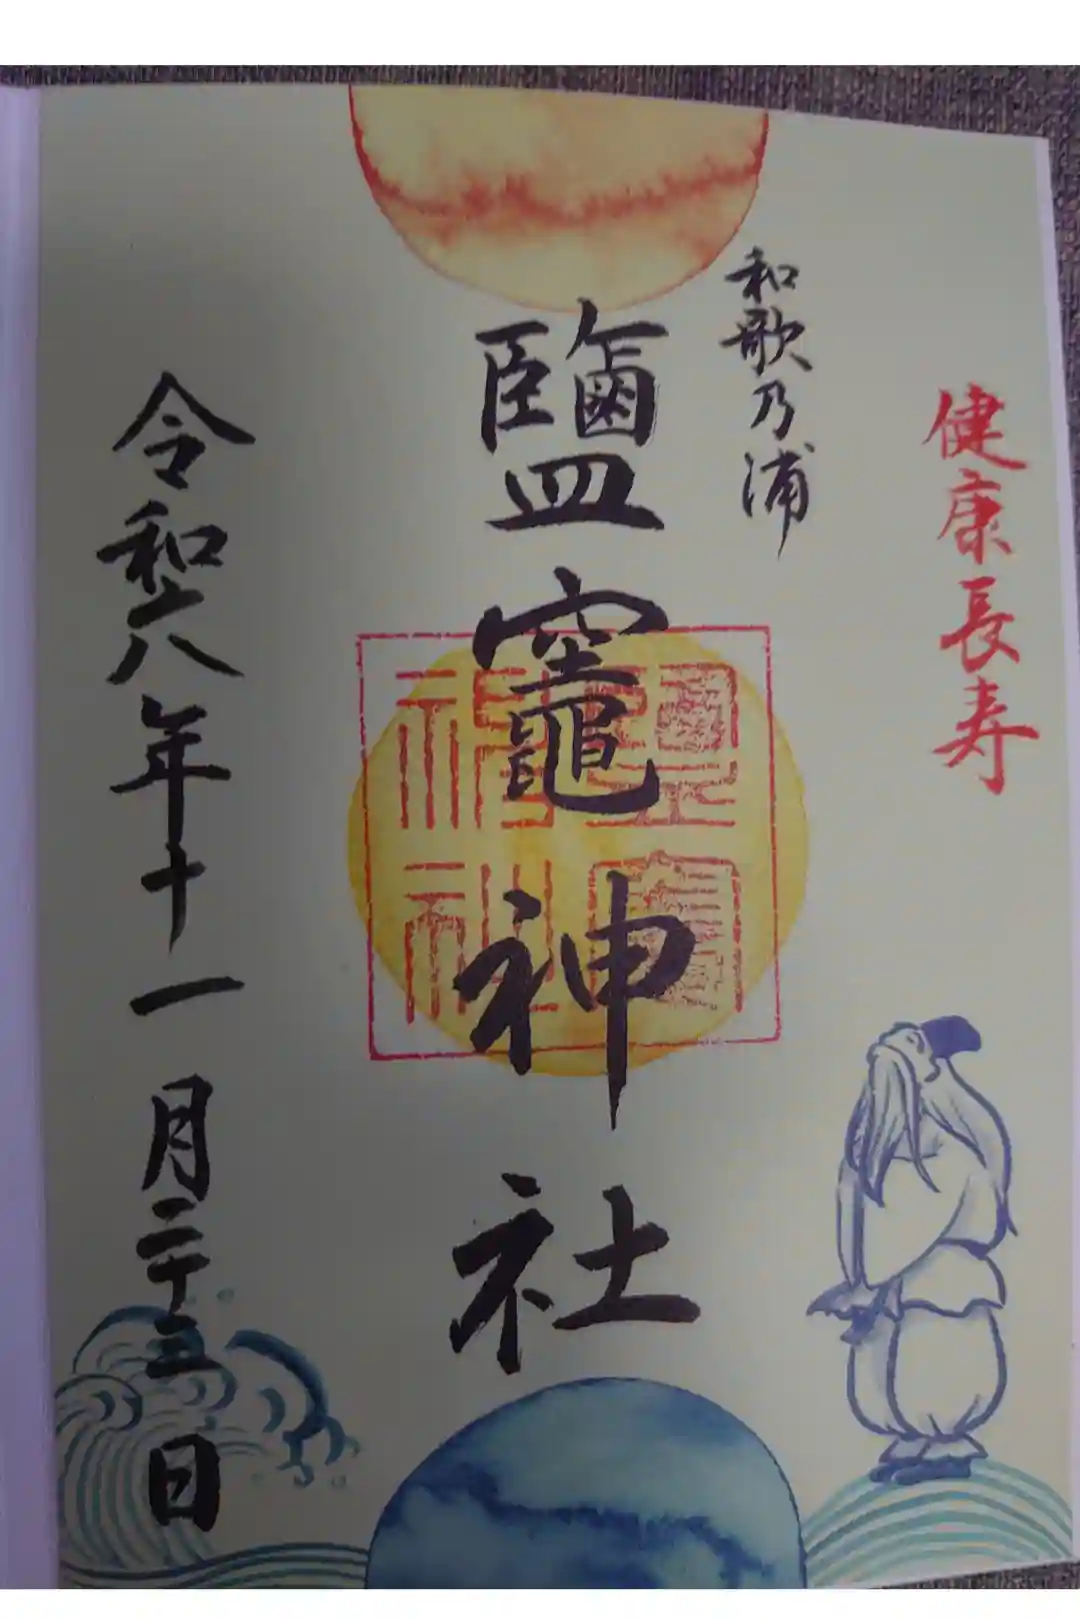 健康長寿
和歌乃浦
鹽竈神社
令和六年十一月二十三日
鹽竈神社